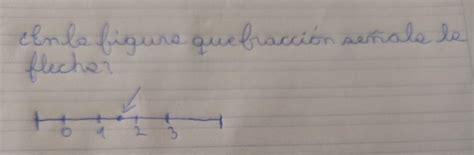 ¿En la figura que fracción señala la
flecha?
0 1 2 3